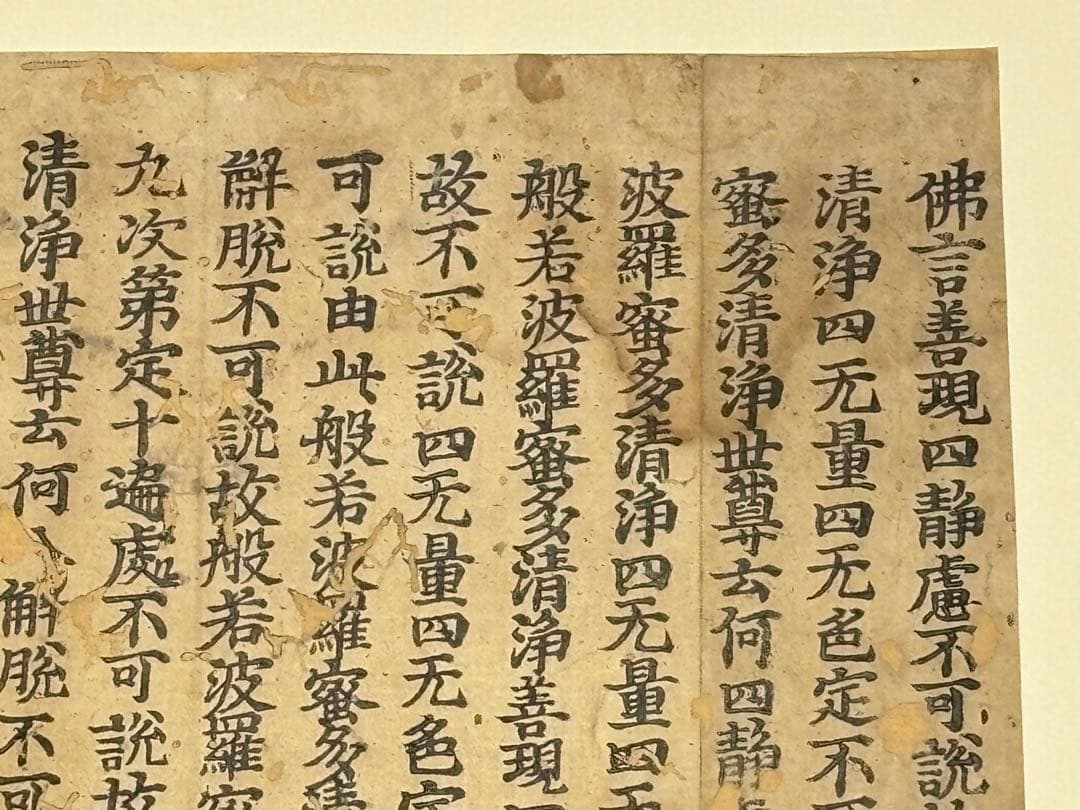 佛言善現四静慮不可說
清淨四无量四无色定不
蜜多清淨世尊云何四静
波羅蜜多清淨四无量四无
般若波羅蜜多清淨善現
故不可說四无量四无色定
可說由此般若波羅蜜多清
解脫不可說故般若波羅蜜
九次第定十遍處不可說故
清淨世尊云何八解脫不可